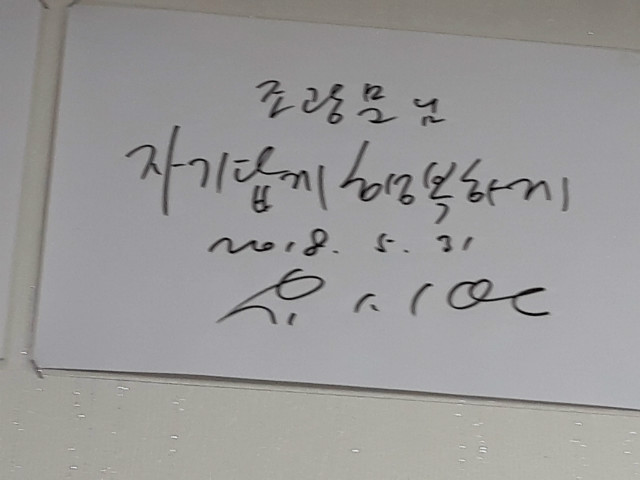 조광물님
자기답게 행복하게
2018. 5. 31